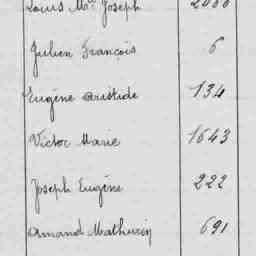 Louis Mie Joseph
Julien François 6
Eugène Aristide 134
Victor Marie 1643
Joseph Eugène 222
Amand Mathurin 691